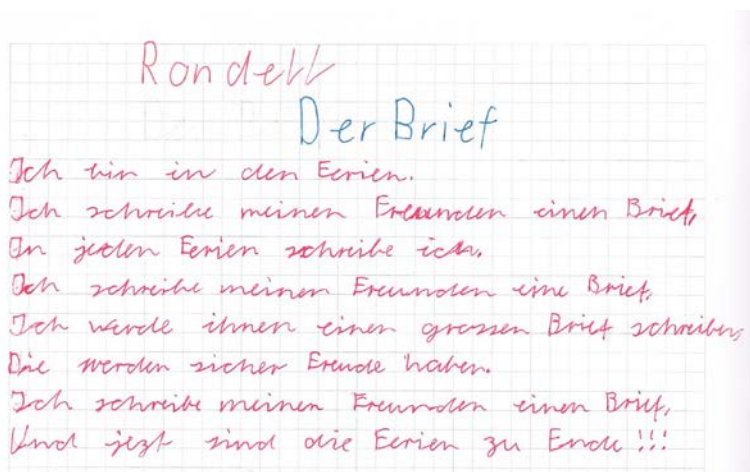 Rondell
Der Brief
Ich bin in den Ferien.
Ich schreibe meinen Freunden einen Brief,
In jeden Ferien schreibe ich.
Ich schreibe meinen Freunden eine Brief,
Ich werde ihnen einen grossen Brief schreiben,
Die werden sicher Freude haben.
Ich schreibe meinen Freunden einen Brief,
Und jezt sind die Ferien zu Ende!!!